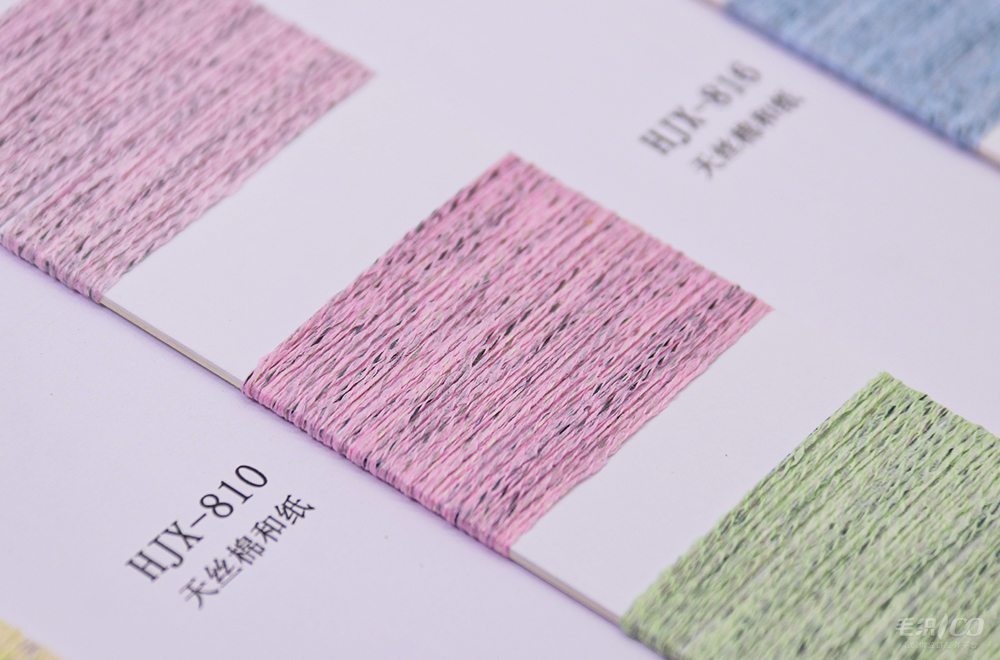 HJX-816
天丝棉和纸
HJX-810
天丝棉和纸